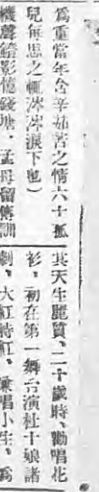 爲重當年含辛茹苦之情六十孤
兒每思之輒涔涔淚下也)
機聲鐙影憶錢塘、孟母留傳訓
其天生麗質、二十歲時、勸唱花
衫、初在第一舞台演杜十娘諸
劇、大紅特紅、兼唱小生、爲